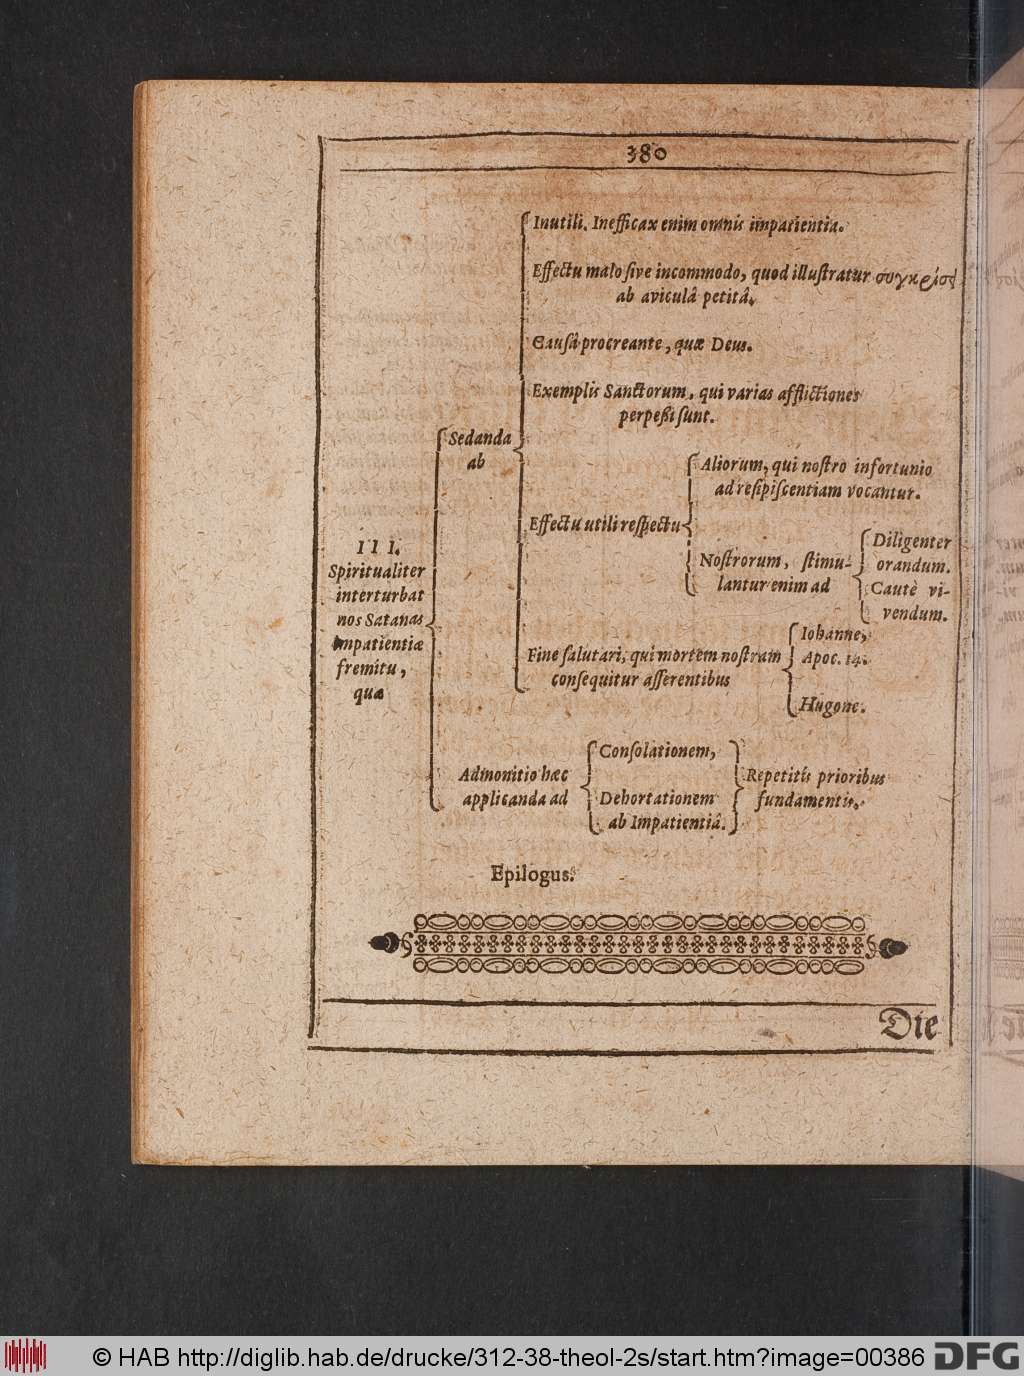 380
Inutili. Inefficax enim omnis impatientia.
Effectu malo sive incommodo, quod illustratur συγκρίσει
ab aviculâ petitâ.
Causâ procreante, quæ Deus.
Exemplis Sanctorum, qui varias afflictiones
perpeßi sunt.
Sedanda
ab
Aliorum, qui nostro infortunio
ad resipiscentiam vocantur.
Effectu utili respectu
Nostrorum, stimu-
lantur enim ad
Diligenter
orandum.
Cautè vi-
vendum.
III.
Spiritualiter
interturbat
nos Satanas
Impatientiæ
fremitu,
quæ
Fine salutari, qui mortem nostram
consequitur asserentibus
Iohanne,
Apoc. 14.
Hugone.
Admonitio hæc
applicanda ad
Consolationem,
Dehortationem
ab Impatientiâ.
Repetitis prioribus
fundamentis.
Epilogus.
Die
© HAB http://diglib.hab.de/drucke/312-38-theol-2s/start.htm?image=00386
DFG